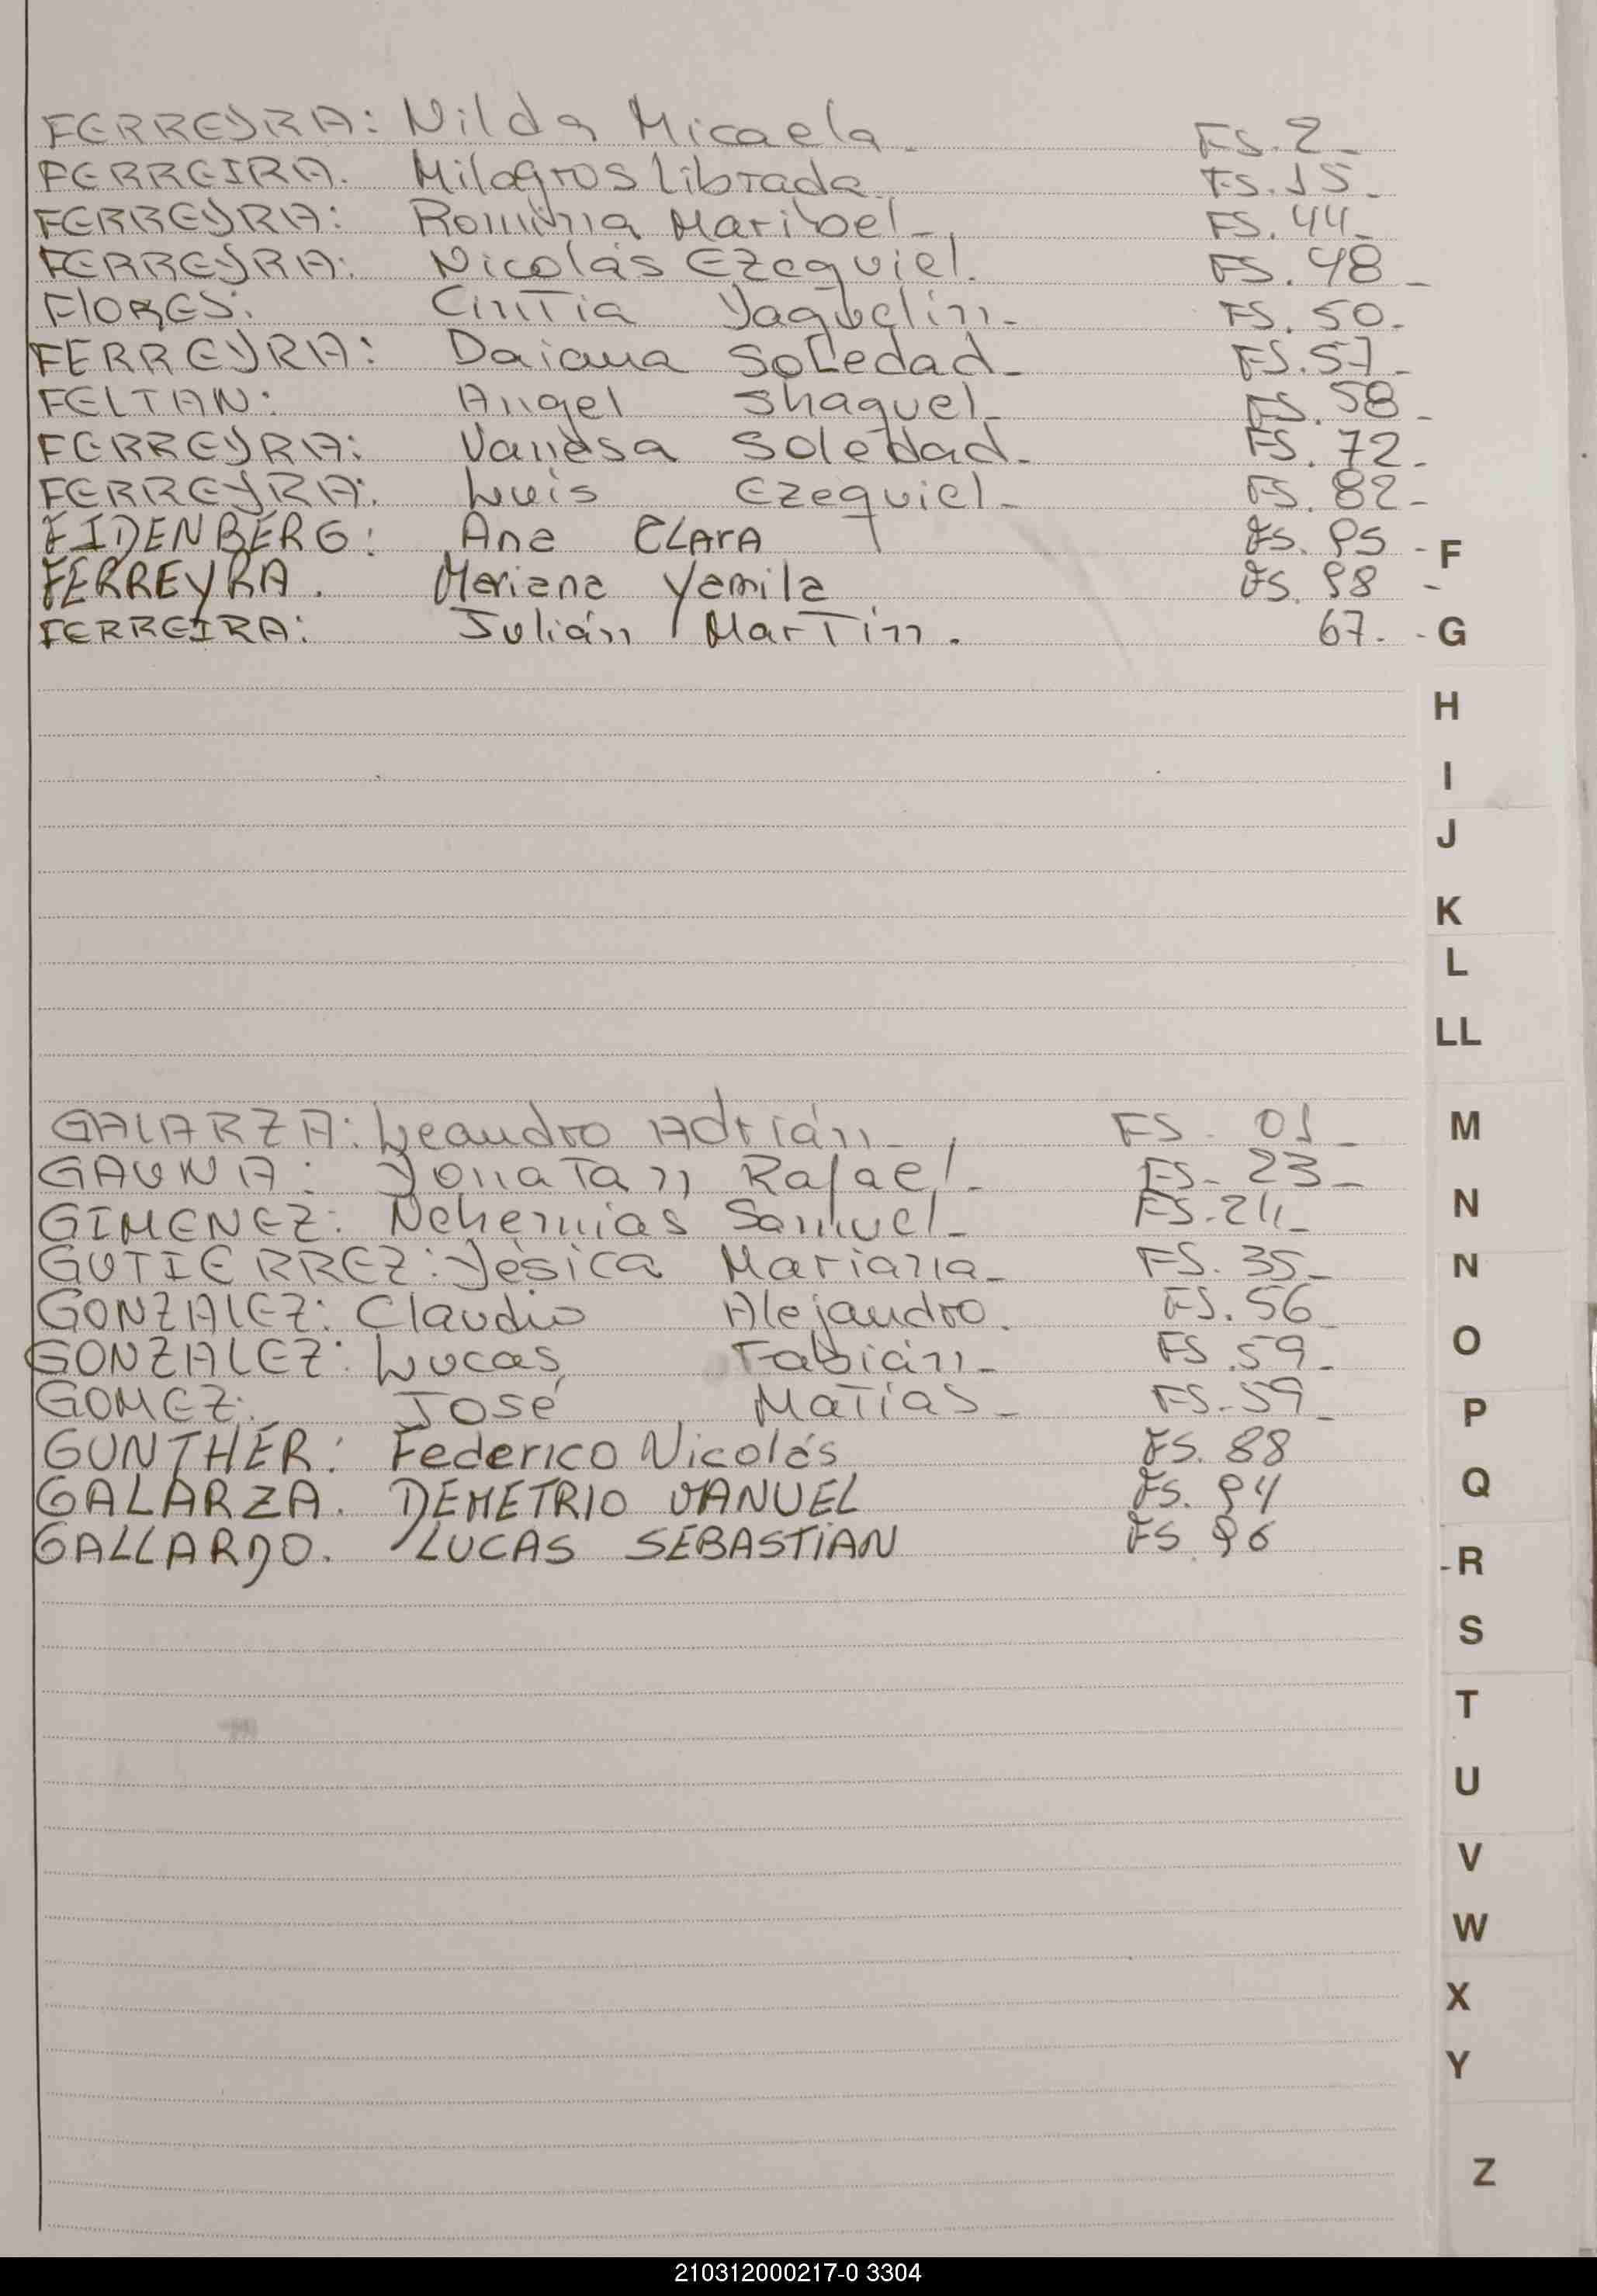 FERREYRA: Nilda Micaela. FS. 2
FERREIRA. Milagros Librada. FS. 15.
FERREYRA: Romina Maribel. FS. 44
FERREYRA: Nicolás Ezequiel. FS. 48
FlORES: CinTia Yaquelin. FS. 50.
FERREYRA: Daiana Soledad. FS. 57
FELTAN: Angel Shaquel. FS. 58
FERREYRA: Vanesa Soledad. FS. 72
FERREYRA: Luis Ezequiel. FS. 82
FIDENBERG: Ana CLArA FS. 95 F
FERREYRA. Mariana Yamila FS. 98
FERREIRA: Julián MarTin. 67. G
H
I
J
K
L
LL
GAlARZA: Leandro Adrián FS. 01 M
GAUNA: YonaTan Rafael. FS. 23
GIMENEZ: Nehemias Samuel FS. 24 N
GUTIERREZ: Yésica Mariana FS. 35 N
GONZAlEZ: Claudio Alejandro. FS. 56
GONZAlEZ: Lucas Fabián FS. 59 O
GOMEZ: José MaTías FS. 59 P
GUNTHER: Federico Nicolás FS. 88
GALARZA. DEMETRIO MANUEL FS. 94 Q
GALLARDO. LUCAS SEBASTIAN FS. 96 R
S
T
U
V
W
X
Y
Z
210312000217-0 3304